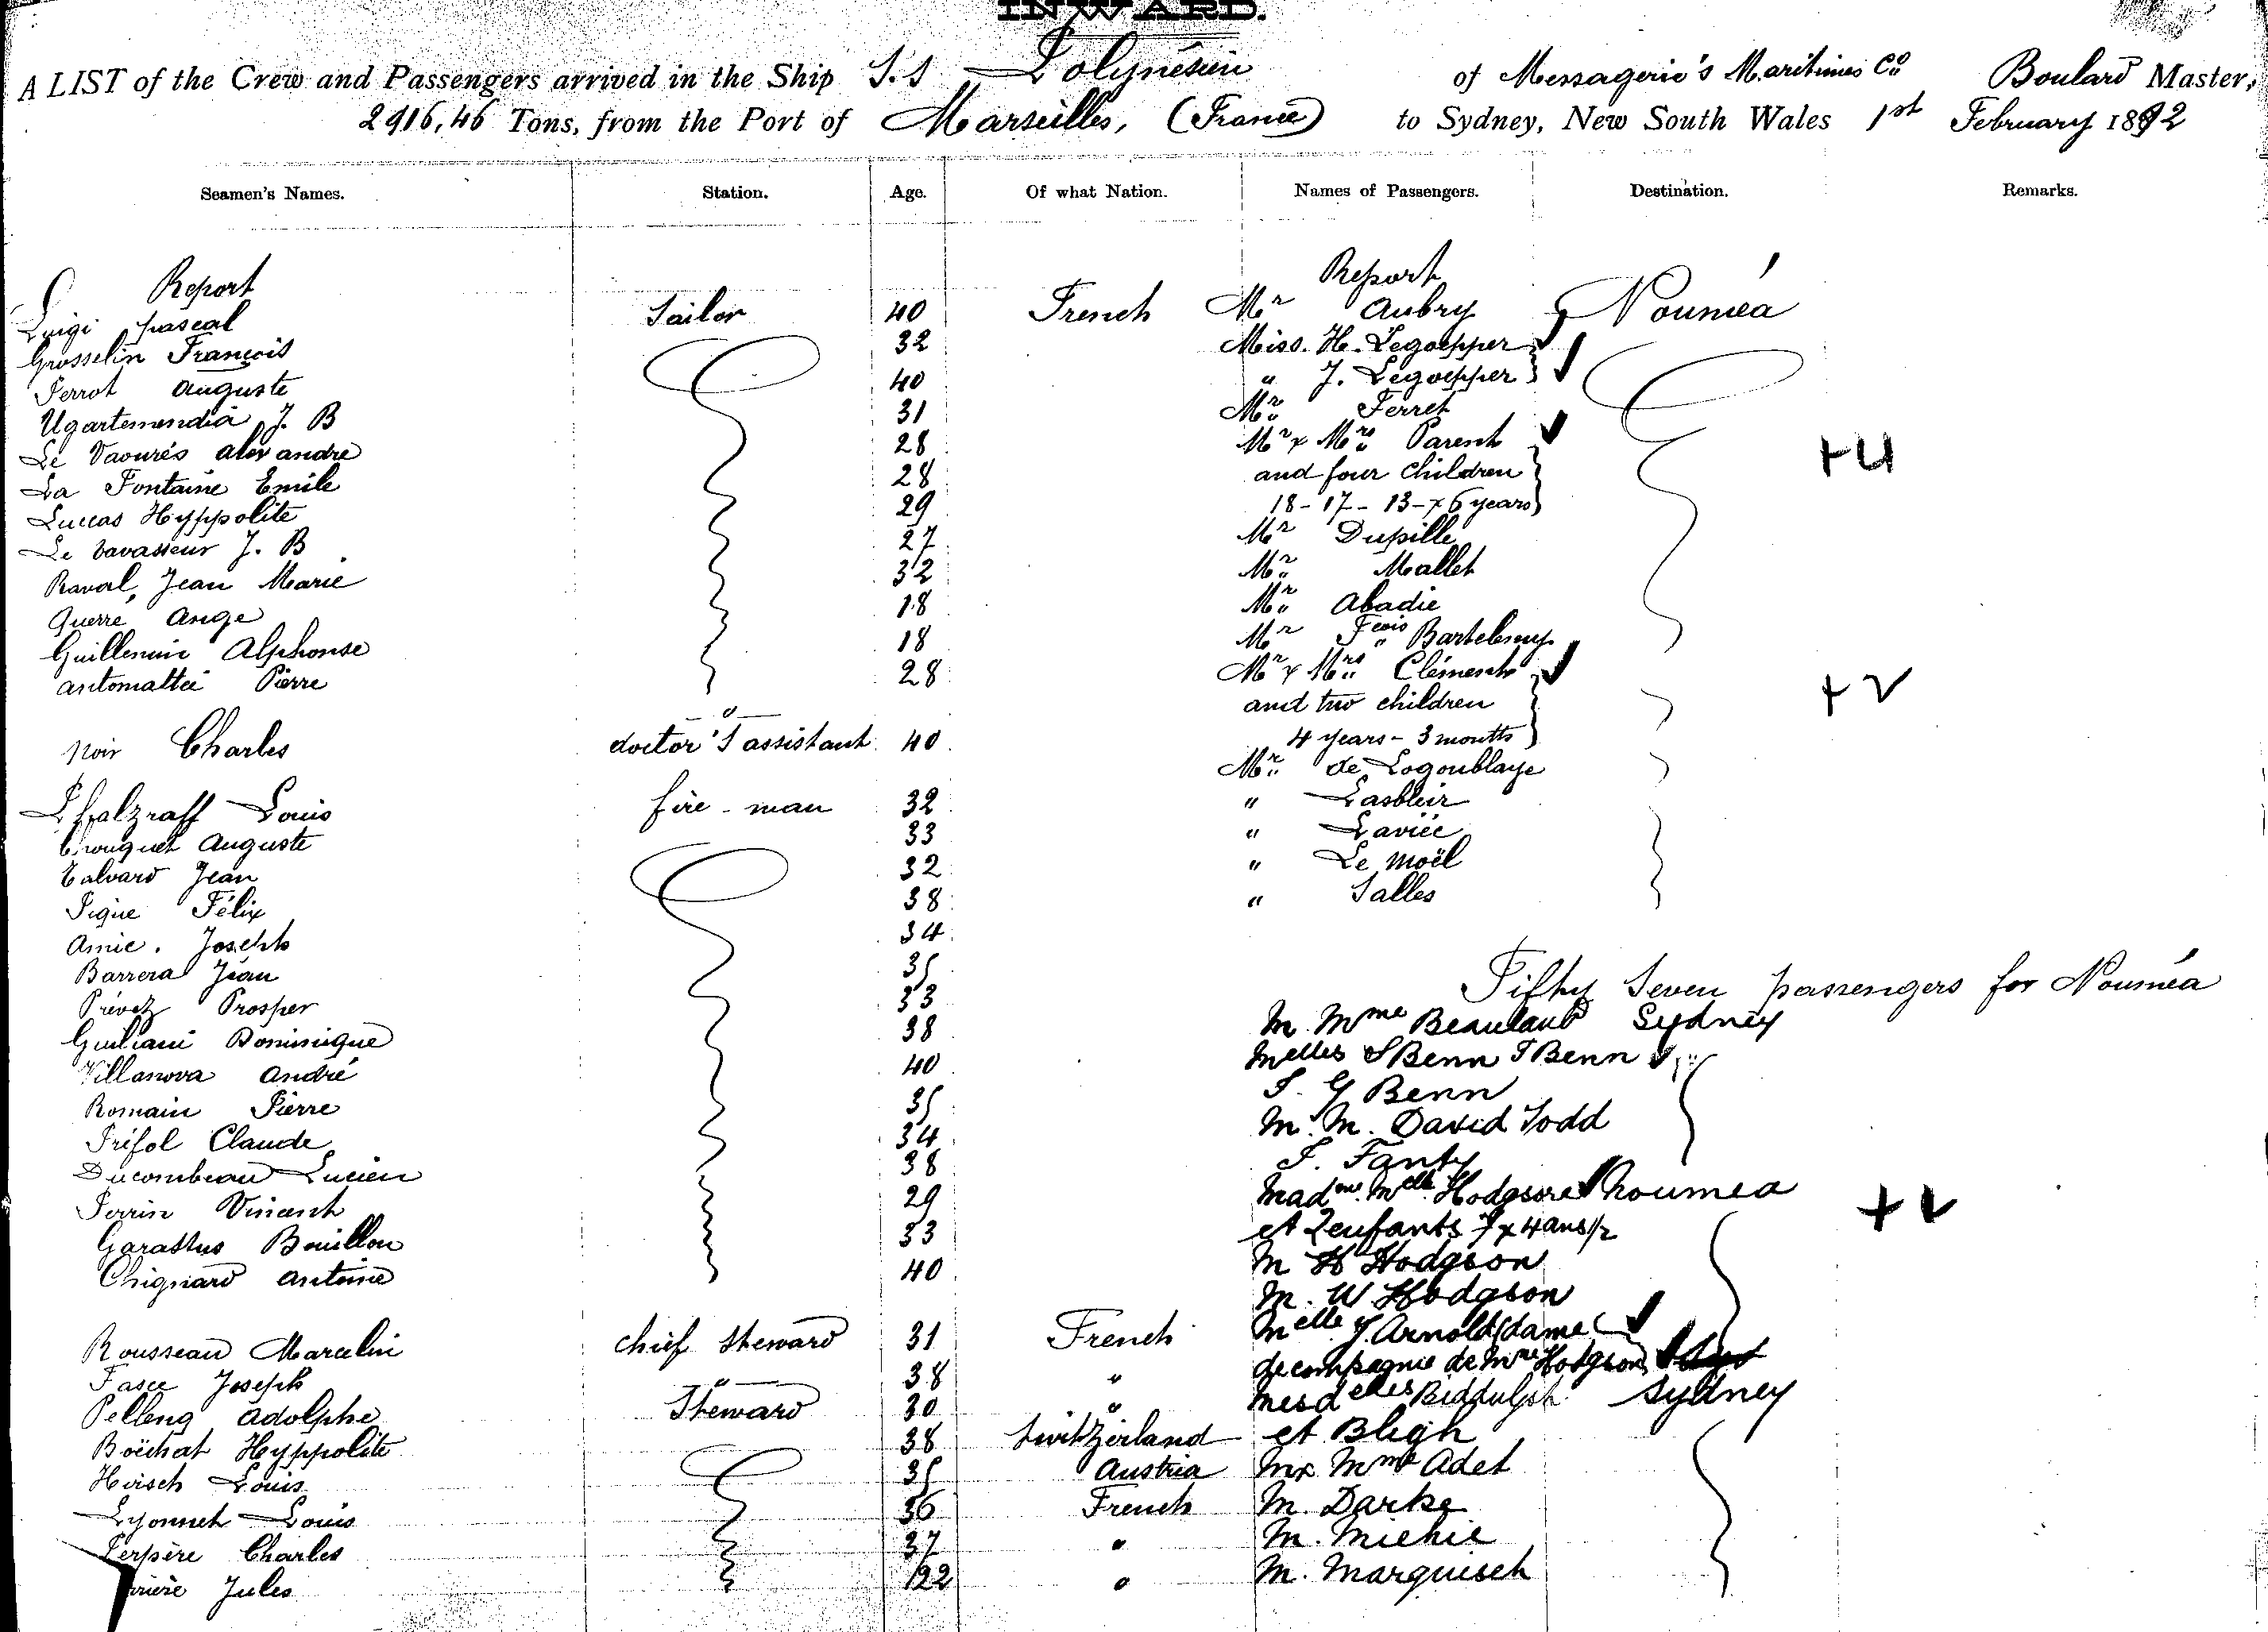 INWARD.
A LIST of the Crew and Passengers arrived in the Ship S.S Polynésien of Messagerie's Maritimes Co Boulard Master,
2916,46 Tons, from the Port of Marseilles, (France) to Sydney, New South Wales 1st February 1892
Seamen's Names. Station. Age. Of what Nation. Names of Passengers. Destination. Remarks.
Report Report
Luigi pascal Sailor 40 French Mr Aubry Nouméa
Grosselin François 32 Miss. H. Legoepper
Perrot Auguste 40 " J. Legoepper
Ugartemendia J. B 31 Mr Ferret
Le Vaourés alexandre 28 Mr & Mrs Parent
La Fontaine Emile 28 and four children +4
Luccas Hyppolite 29 18 - 17 - 13 - & 6 years
Le Vavasseur J. B 27 Mr Dupille
Raval, Jean Marie 32 Mr Mallet
Guerre Ange 18 Mr Abadie
Guillemin Alphonse 18 Mr Fcois Bartelemy
antomattei Pierre 28 Mr & Mrs Clément
and two children +2
noir Charles doctor's assistant 40 4 years - 3 months
Mr de Logoublaye
Pfalzraff Louis fire-man 32 " Lasbleir
Crouquet Auguste 33 " Laviée
Calvard Jean 32 " Le Moël
Pique Félix 38 " Salles
Amic. Joseph 34
Barrera Jean 35
Prévot Prosper 33 Fifty Seven passengers for Nouméa
Guiliani Dominique 38 M. Mme Beauland Sydney
Villanova André 40 Melles S Benn T Benn
Romain Pierre 35 S. G Benn
Préfol Claude 34 M. M. David Todd
Ducombeau Lucien 38 F. Fanty
Perrin Vincent 29 Madme Melle Hodgson Noumea
Garastus Bouillon 33 et 2 enfants 7 & 4 ans 1/2 +2
Chignard Antoine 40 M H Hodgson
M. W Hodgson
Rousseau Marcelin chief steward 31 French Melle Y. Arnold (dame
Fasce Joseph " 38 " de compagnie de Mme Hodgson)
Pelleng Adolphe Steward 30 " Mesdelles Biddulph Sydney
Boëchat Hyppolite 38 Switzerland et Bligh
Hirsch Louis 35 Austria M & Mme Adet
Lyonnet Louis 36 French M. Darke
Perpère Charles 37 " M. Michie
Jules 22 " M. Marquisch